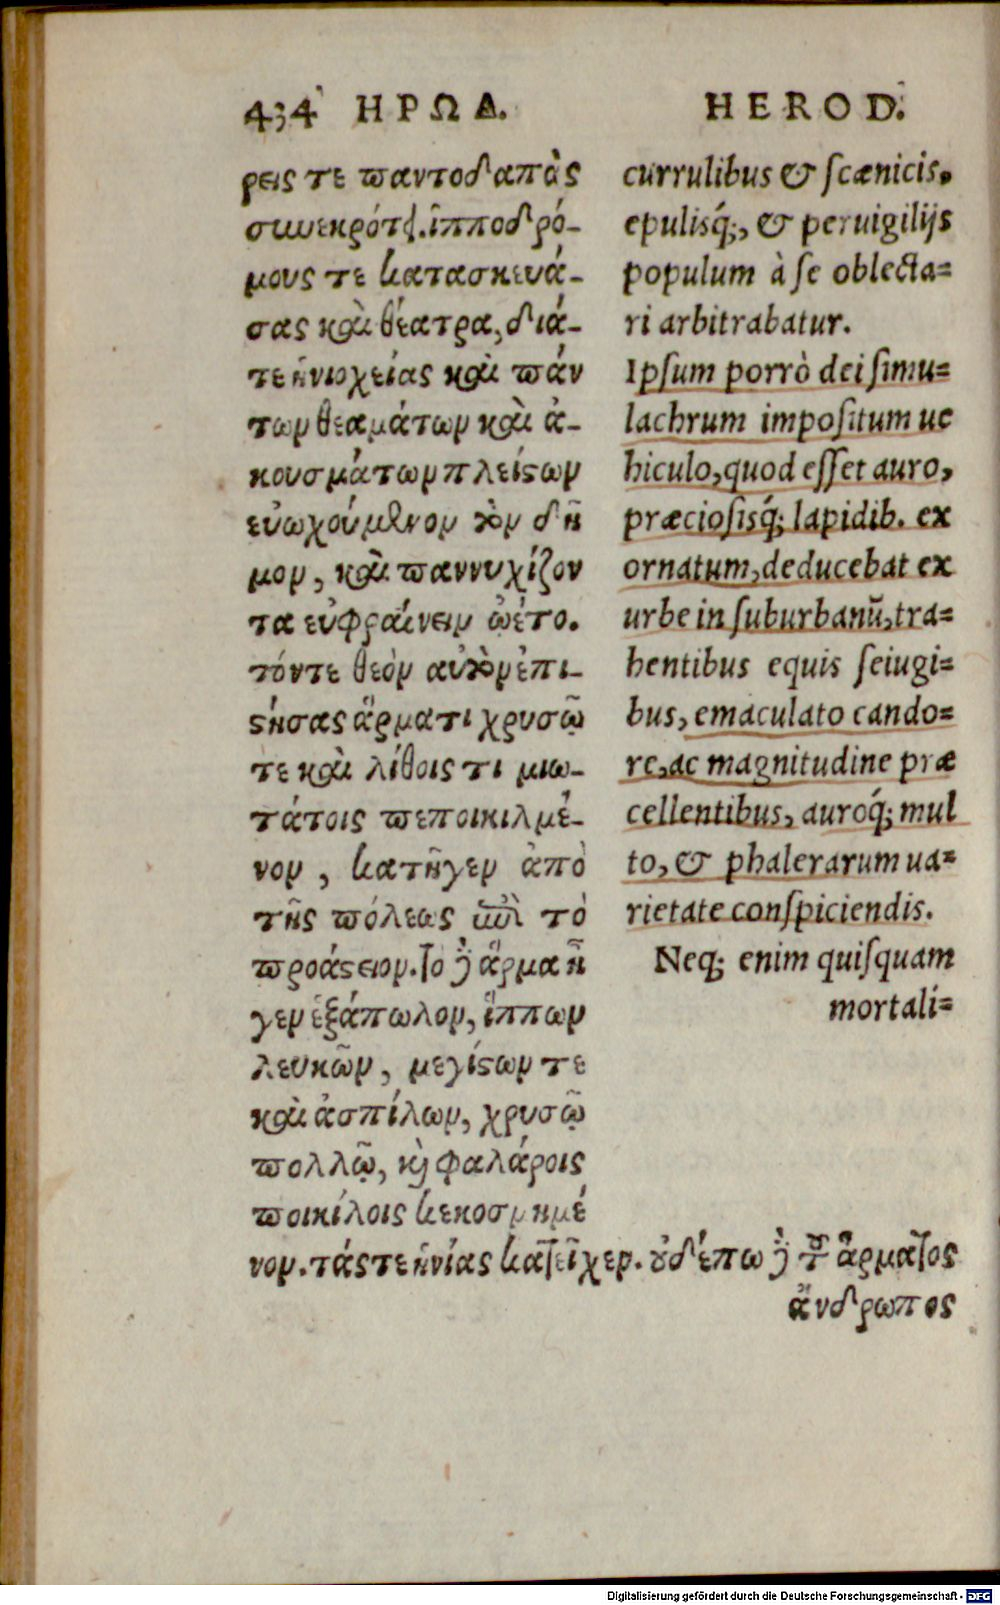 434 ΗΡΩΔ.
ρεις τε παντοδαπὰς
συνεκρότει. ἱπποδρό-
μους τε κατασκευά-
σας καὶ θέατρα, διά-
τε ἡνιοχείας καὶ πάν
των θεαμάτων καὶ ἀ-
κουσμάτων πλείστων
εὐωχούμενον τὸν δῆ
μον, καὶ παννυχίζον
τα εὐφραίνειν ᾤετο.
τόντε θεὸν αὐτὸν ἐπι-
στήσας ἅρματι χρυσῷ
τε καὶ λίθοις τι μιω-
τάτοις πεποικιλμέ-
νον, κατῆγεν ἀπὸ
τῆς πόλεως ἐπὶ τὸ
προάστειον. τὸ δὲ ἅρμα ἦ
γεν ἑξάπωλον, ἵππων
λευκῶν, μεγίστων τε
καὶ ἀσπίλων, χρυσῷ
πολλῷ, καὶ φαλάροις
ποικίλοις κεκοσμημέ
νον. τάς τε ἡνίας κατεῖχεν. οὐδέπω δὲ τοῦ ἅρματος
ἄνδρωπος
HEROD.
currulibus & scænicis,
epulisq́;, & peruigilijs
populum à se oblecta=
ri arbitrabatur.
Ipsum porrò dei simu=
lachrum impositum ue
hiculo, quod esset auro,
præciosisq́; lapidib. ex
ornatum, deducebat ex
urbe in suburbanũ, tra=
hentibus equis seiugi=
bus, emaculato cando=
re, ac magnitudine præ
cellentibus, auroq́; mul
to, & phalerarum ua=
rietate conspiciendis.
Neq; enim quisquam
mortali=
Digitalisierung gefördert durch die Deutsche Forschungsgemeinschaft - DFG